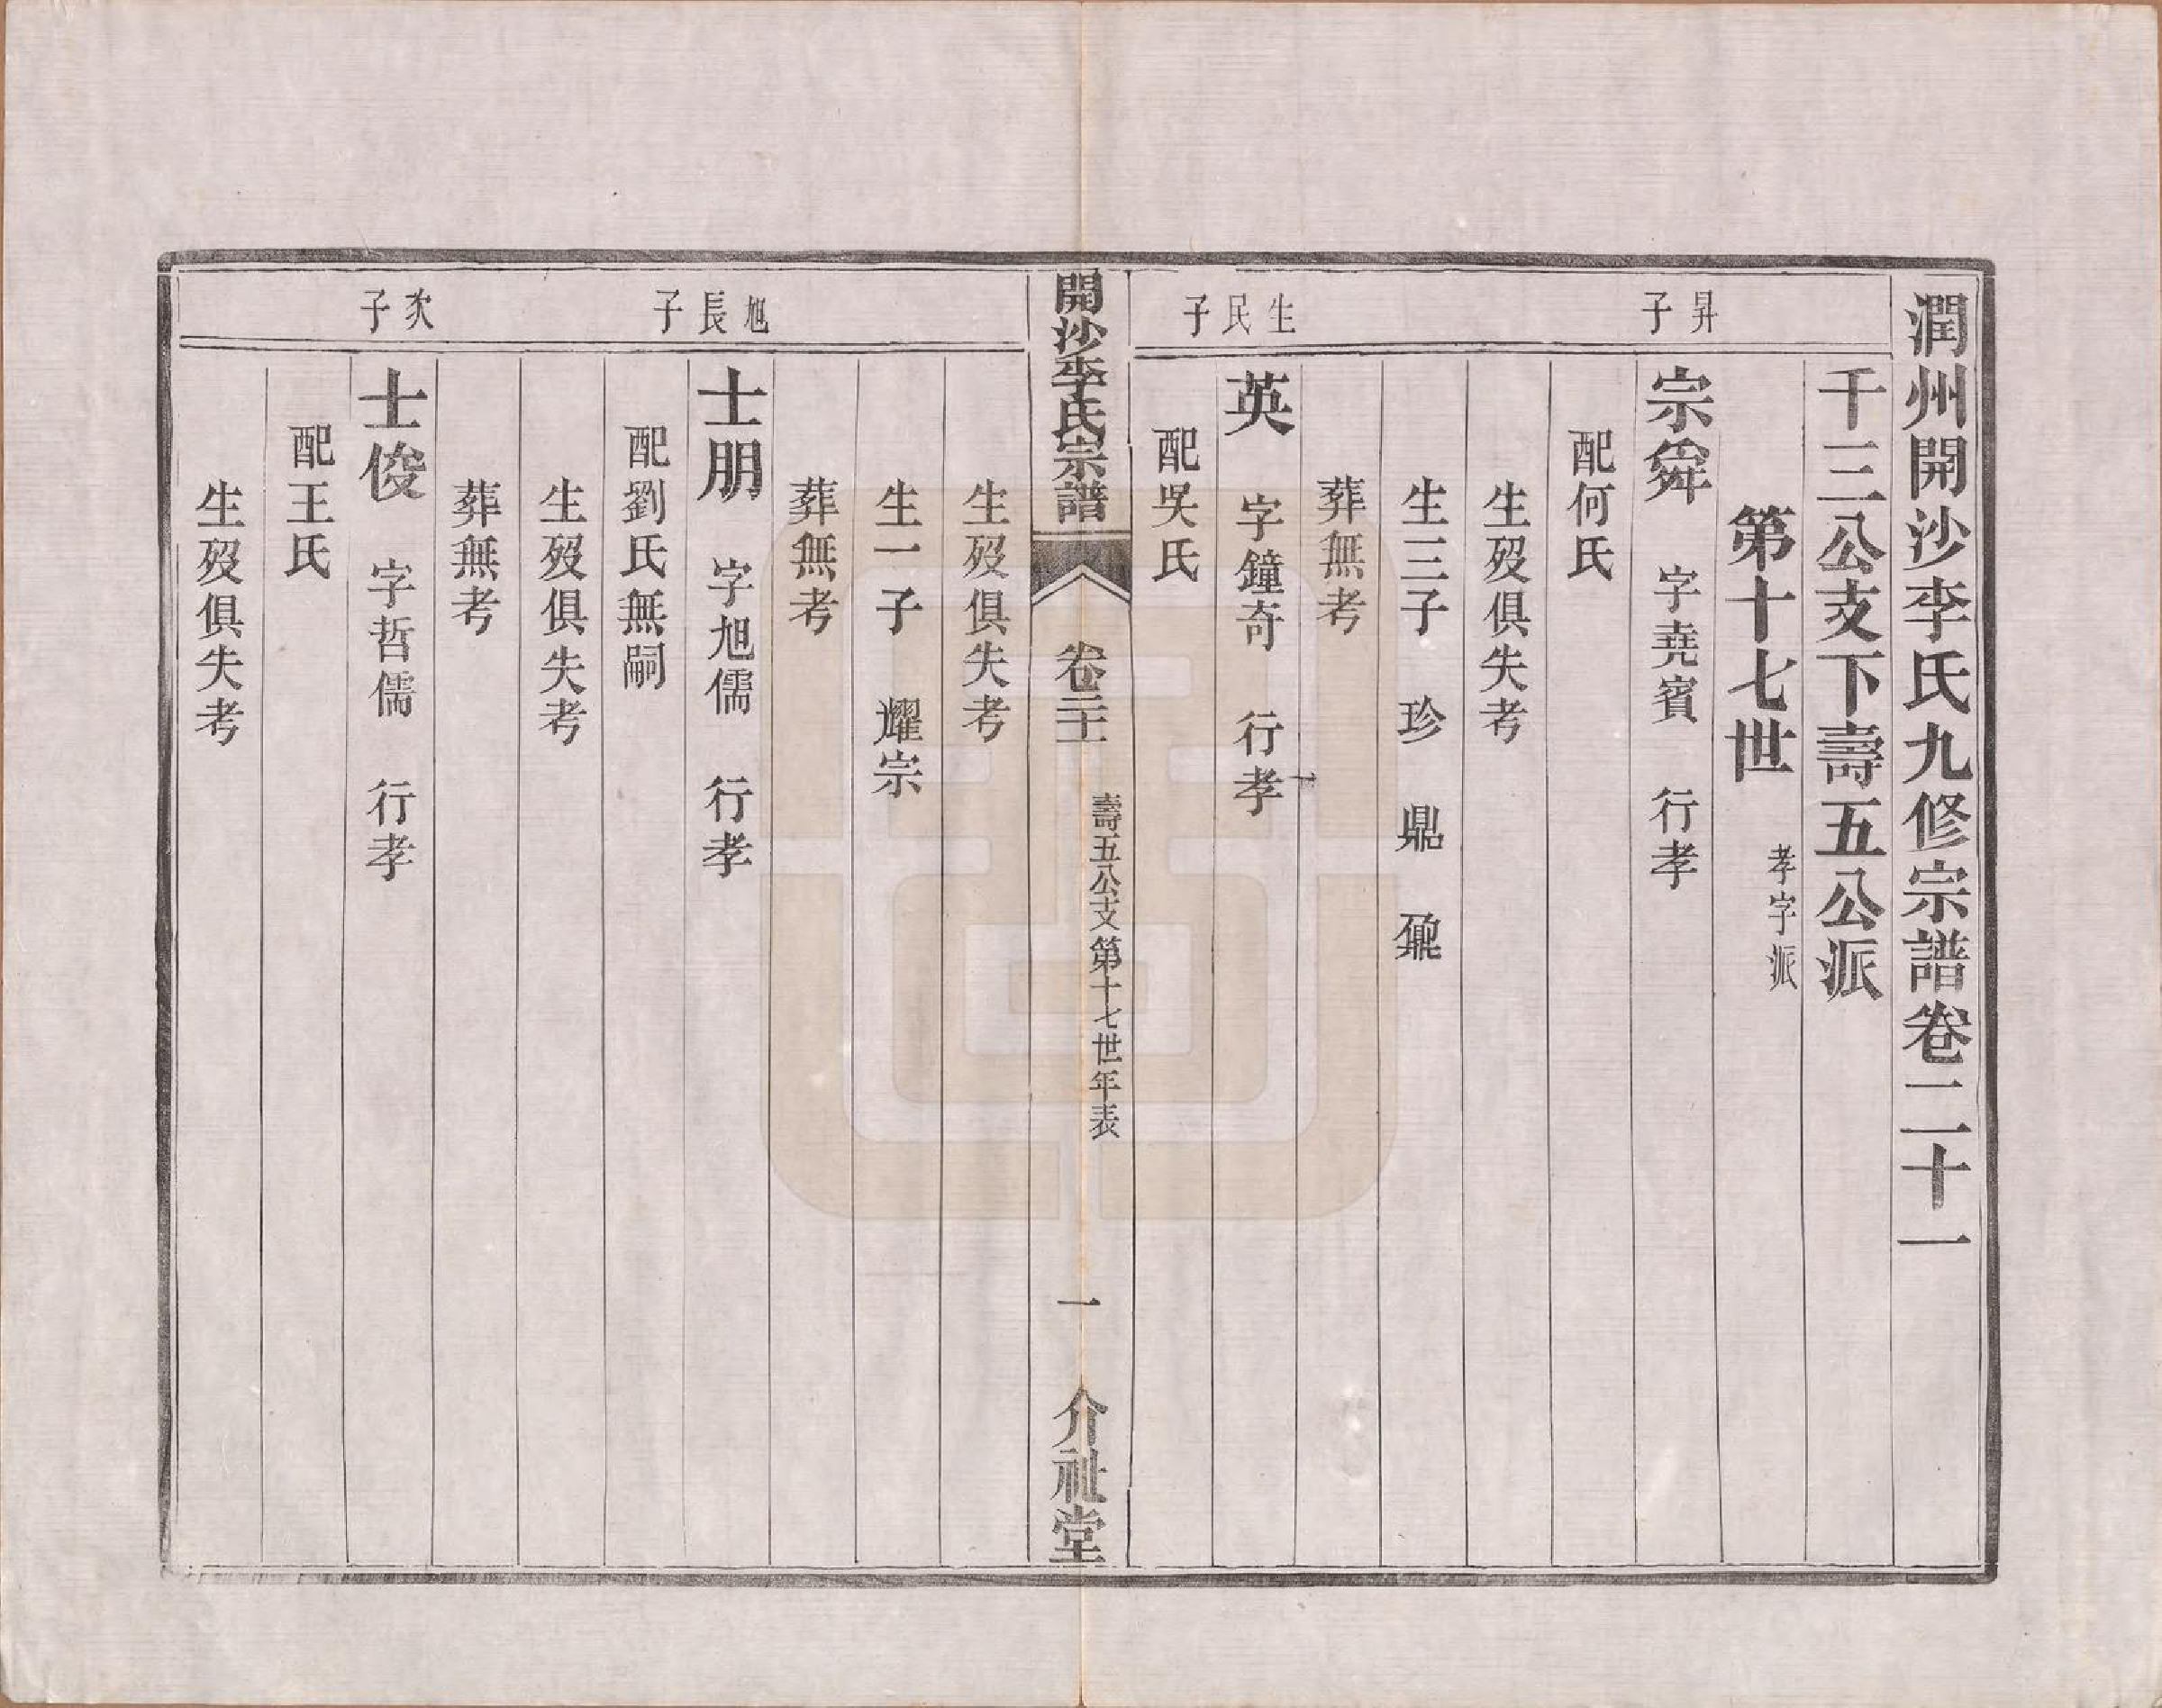 潤州開沙李氏九修宗譜卷二十一
千三公支下壽五公派
第十七世 孝字派
昇子
宗舜 字堯賓 行孝
配何氏
生歿俱失考
生三子 珍 鼎 鼐
葬無考
生民子
英 字鐘奇 行孝
配吳氏
開沙李氏宗譜 卷二十一 壽五公支第十七世年表 一 介祉堂
生歿俱失考
生一子 耀宗
葬無考
旭長子
士朋 字旭儒 行孝
配劉氏無嗣
生歿俱失考
葬無考
次子
士俊 字哲儒 行孝
配王氏
生歿俱失考